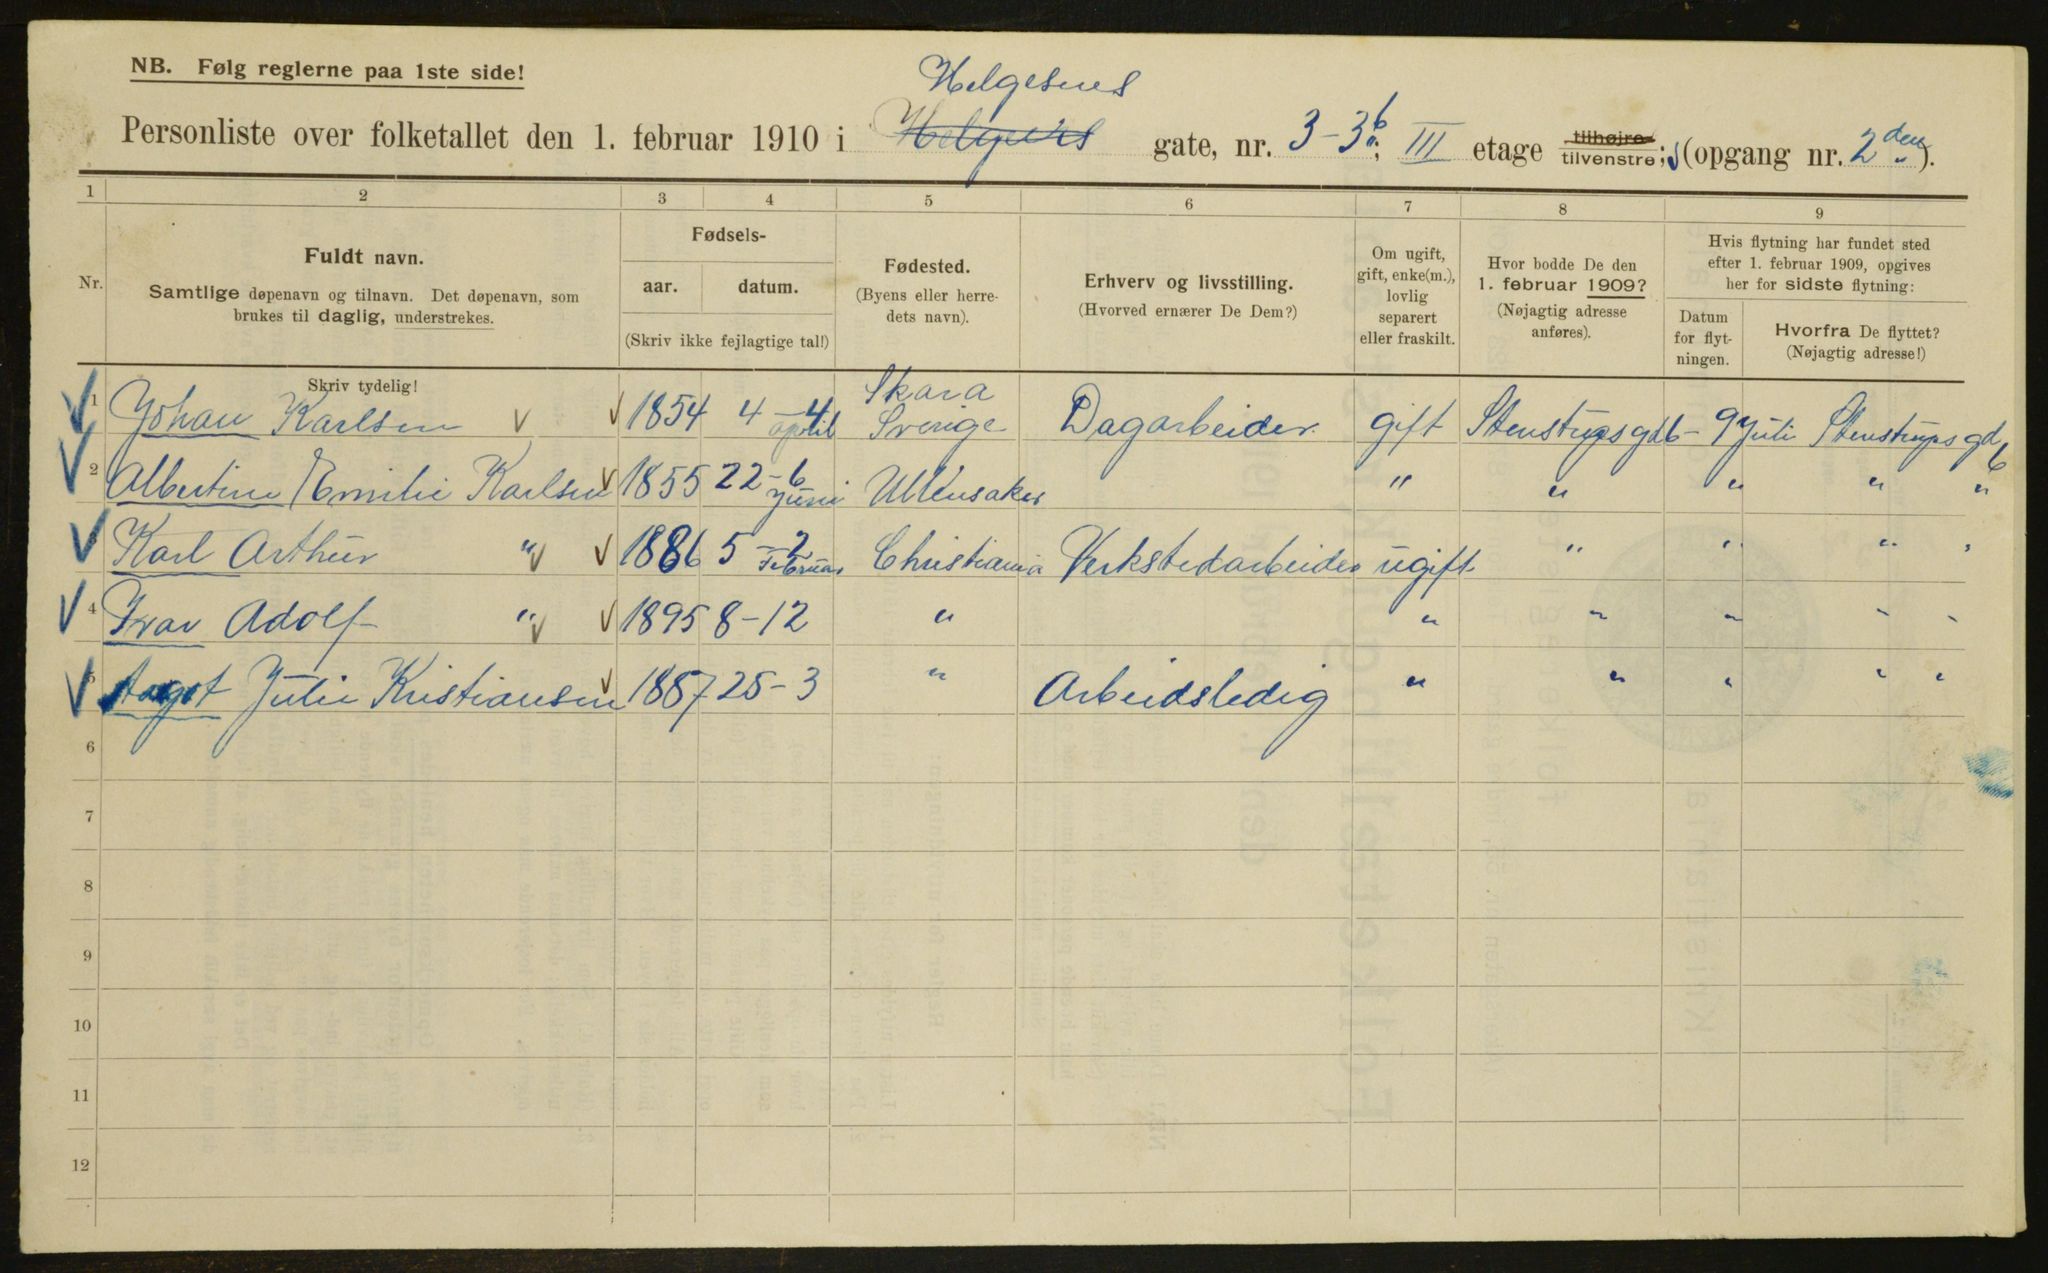 NB. Følg reglerne paa 1ste side!
Helgesens
Personliste over folketallet den 1. februar 1910 i Helgens gate, nr. 3-3b; III etage tilhøjre tilvenstre; (opgang nr. 2den).
1 2 3 4 5 6 7 8 9
Nr.
Fuldt navn.
Samtlige døpenavn og tilnavn. Det døpenavn, som
brukes til daglig, understrekes.
Fødsels-
aar. datum.
(Skriv ikke fejlagtige tal!)
Fødested.
(Byens eller herre-
dets navn).
Erhverv og livsstilling.
(Hvorved ernærer De Dem?)
Om ugift,
gift, enke(m.),
lovlig
separert
eller fraskilt.
Hvor bodde De den
1. februar 1909?
(Nøjagtig adresse
anføres).
Hvis flytning har fundet sted
efter 1. februar 1909, opgives
her for sidste flytning:
Datum
for flyt-
ningen.
Hvorfra De flyttet?
(Nøjagtig adresse!)
Skriv tydelig!
1 Johan Karlsen 1854 4-4 april Skara Sverige Dagarbeider. gift Stenstrupsgd 6 - 9 Juli Stenstrupsgd 6
2 Albertine Emilie Karlsen 1855 22-6 Juni Ullensaker " " " " "
Karl Arthur " 1886 5-2 Februar Christiania Verkstedarbeider ugift " " " "
4 Ivar Adolf " 1895 8-12 " " " " " "
5 Aagot Julie Kristiansen 1887 25-3 " Arbeidsledig " " " " "
6
7
8
9
10
11
12